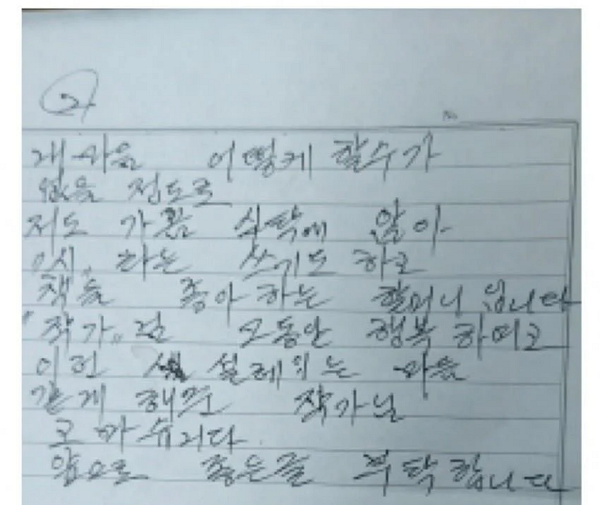 2
No
내 마음 어떻게 할수가
없을 정도로
저도 가끔 식탁에 앉아
"시" 라는 쓰기도 하고
책을 좋아 하는 할머니 입니다
"작가" 오동안 행복 하며고
이런 설레의는 마음
갇게 해준 작가님
고마쉬리다
앞으로 좋은줄 부탁 합니다